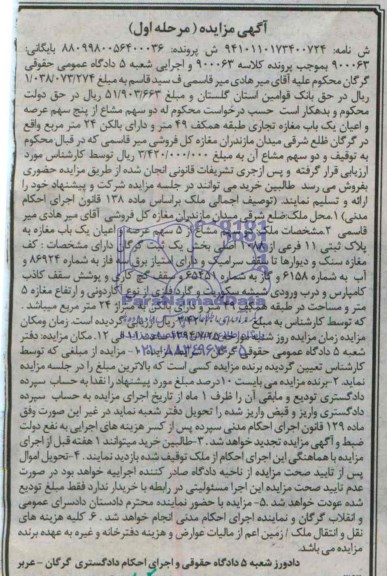 آگهی مزایده (مرحله اول)
ش نامه: ۹۴۱۰۱۱۰۱۷۳۴۰۰۷۲۴ ش پرونده: ۸۸۰۹۹۸۰۰۵۶۴۰۰۰۳۶ بایگانی:
۹۰۰۰۶۳ بموجب پرونده کلاسه ۹۰۰۰۶۳ و اجرایی شعبه ۵ دادگاه عمومی حقوقی
گرگان محکوم علیه آقای میر هادی میر قاسمی ف سید قاسم به مبلغ ۱/۰۳۸/۰۷۳/۲۷۴
ریال در حق بانک قوامین استان گلستان و مبلغ ۵۱/۹۰۳/۶۶۳ ریال در حق دولت
محکوم و بدهکار است حسب درخواست محکوم له دو سهم مشاع از پنج سهم عرصه
و اعیان یک باب مغازه تجاری طبقه همکف ۴۹ متر و دارای بالکن ۲۴ متر مربع واقع
در گرگان ضلع شرقی میدان مازندران مغازه گل فروشی میر قاسمی که در قبال محکوم
به توقیف و دو سهم مشاع آن به مبلغ ۳/۴۲۰/۰۰۰/۰۰۰ ریال توسط کارشناس مورد
ارزیابی قرار گرفته و پس از جری تشریفات قانونی انجان شده از طریق مزایده حضوری
بفروش می رسد طالبین خرید می توانند در جلسه مزایده شرکت و پیشنهاد خود را
ارائه و تسلیم نمایند. (توصیف اجمالی ملک براساس ماده ۱۳۸ قانون اجرای احکام
مدنی) ۱.محل ملک:ضلع شرقی میدان مازندران مغازه گل فروشی آقای میر هادی میر
قاسمی ۲.مشخصات ملک مشاع از ۵ سهم عرصه و اعیان یک باب مغازه به
پلاک ثبتی ۱۱ فرعی از اصلی بخش یک ثبت گرگان دارای مشخصات : کف
مغازه سنگ و دیوارها تا سقف سرامیک و دارای امتیاز برق سه فاز به شماره ۸۶۹۲۴ و
آب به شماره ۶۱۵۸ و گاز به شماره ۶۵۴۵۹ سقف گچ کاری و پوشش سقف کاذب
کامپارس و درب ورودی شیشه سکوریت و گرد فلزی از نوع آکاردئونی و ارتفاع مغازه ۵
متر و مساحت در طبقه همکف ۴۹ متر و دارای بالکن به متراژ ۲۴ متر مربع میباشد.
که توسط کارشناس به مبلغ ریال ارزیابی گردیده است. زمان ومکان
مزایده زمان مزایده روز شنبه مورخ ۱۳۹۴/۷/۲۵ ساعت ۱۱ الی ۱۲. مکان مزایده: دفتر
شعبه ۵ دادگاه عمومی حقوقی گرگان مزایده از مبلغی که توسط
کارشناس تعیین گردیده برنده مزایده کسی است که بالاترین مبلغ را در جلسه مزایده
نماید ۲-برنده مزایده می بایست ۱۰درصد مبلغ مورد پیشنهاد را نقدا به حساب سپرده
دادگستری تودیع و مابقی آن را ظرف ۱ ماه از تاریخ اجرای مزایده به حساب سپرده
دادگستری واریز و قبض واریز شده را تحویل دفتر شعبه نماید در غیر این صورت وفق
ماده ۱۲۹ قانون اجرای احکام مدنی سپرده پس از کسر هزینه های اجرایی به نفع دولت
ضبط و آگهی مزایده تجدید خواهد شد. ۳-طالبین خرید میتوانند ۱ هفته قبل از اجرای
مزایده با هماهنگی این اجرای احکام از ملک توقیف شده بازدید نمایند. ۴-تحویل اموال
پس از تایید صحت مزایده از ناحیه دادگاه صادر کننده اجراییه خواهد بود در صورت
عدم تایید صحت مزایده این اجرا مسئولیتی در رابطه با خریدار ندارد فقط مبلغ تودیع
شده عودت خواهد شد .۵- مزایده با حضور نماینده محترم دادستان دادسرای عمومی
و انقلاب گرگان و نماینده اجرای احکام مدنی انجام خواهد شد . ۶. کلیه هزینه های
نقل و انتقال ملک / زمین اعم از مالیات عوارض و هزینه دفترخانه و غیره به عهده برنده
مزایده می باشد.
دادورز شعبه ۵ دادگاه حقوقی و اجرای احکام دادگستری گرگان - عربر
ParsNamadData
۰۲۱-۸۸۳۴۹۶۷۰-۵